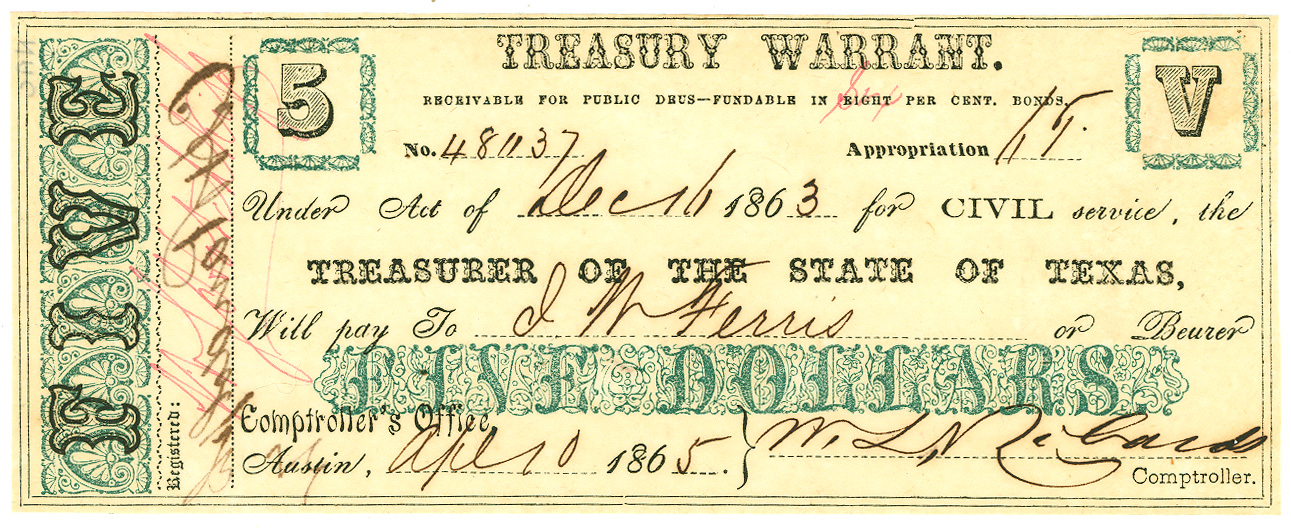 FIVE
Registered:
5
TREASURY WARRANT.
V
RECEIVABLE FOR PUBLIC DEUS—FUNDABLE IN EIGHT PER CENT. BONDS.
Six
No. 48037
Appropriation 15.
Under Act of Dec 16 1863 for CIVIL service, the
TREASURER OF THE STATE OF TEXAS,
Will pay To J W Ferris or Bearer
FIVE DOLLARS
Comptroller's Office,
Austin, Apl 10 1865.
W. L. Robards
Comptroller.